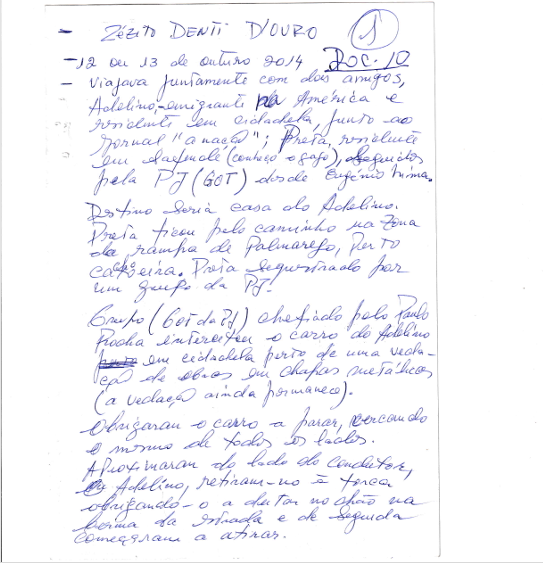 - Zézito DENTI D'OURO
1
- 12 ou 13 de outuro 2014 DOC. 10
- Viajava juntamente com dois amigos,
Adelino, emigrante na América e
residente em cidadela, junto ao
Jornal "a nação"; Preta, residente
em (conheço o gajo), seguidos
pela PJ (GOT) desde Eugénio Lima.
Destino seria casa do Adelino.
Preta ficou pelo caminho na zona
da rampa de Palmarejo, Perto
Caixeira. Preta sequestrado por
um grupo da PJ.
Grupo (GOT da PJ) chefiado pelo Paulo
Rocha interceitou o carro do Adelino
em cidadela perto de uma veda-
ção de obras em chapas metálicas
(a vedação ainda permanece).
Obrigaran o carro a parar, cercando
o mesmo de todos os lados.
Aproximaran do lado do condutor,
Adelino, retiram-no à força
obrigando-o a deitar no chão na
berma da estrada e de seguida
começaram a atirar.